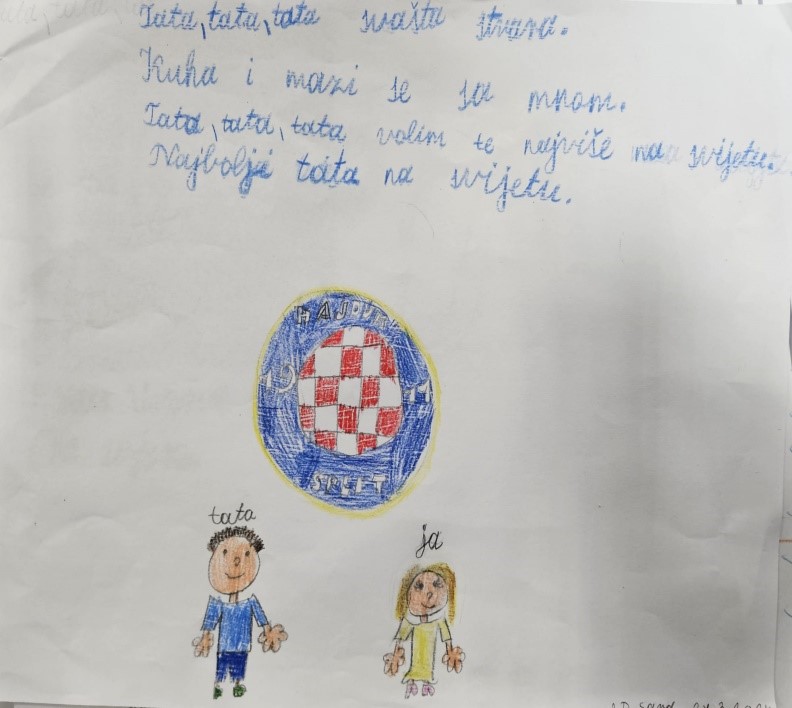 Tata, tata, tata svašta stvara.
Kuha i mazi se sa mnom.
Tata, tata, tata volim te najviše na svijetu.
Najbolji tata na svijetu.
HAJDUK
19 11
SPLIT
tata
ja